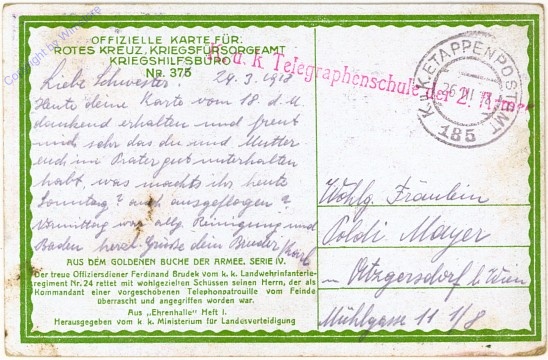 OFFIZIELLE KARTE FÜR:
ROTES KREUZ, KRIEGSFÜRSORGEAMT
KRIEGSHILFSBÜRO
NR. 375
K. u. k. Telegraphenschule der 2. Armee
K.u.K. ETAPPENPOSTAMT
185
Liebe Schwester. 24.3.1918
Heute deine Karte vom 18. d. M.
dankend erhalten und freut
mich sehr das du und Mutter
euch im Prater gut unterhalten
habt, was machts ihr heute
Sonntag? auch ausgeflogen?
Vormittag war allg. Reinigung und
Baden herzl. Grüsse dein Bruder Karl
AUS DEM GOLDENEN BUCHE DER ARMEE, SERIE IV.
Der treue Offiziersdiener Ferdinand Brudek vom k. k. Landwehrinfanterie-
regiment Nr. 24 rettet mit wohlgezielten Schüssen seinen Herrn, der als
Kommandant einer vorgeschobenen Telephonpatrouille vom Feinde
überrascht und angegriffen worden war.
Aus „Ehrenhalle" Heft I.
Herausgegeben vom k. k. Ministerium für Landesverteidigung
Wohlg. Fräulein
Poldi Mayer
Atzgersdorf b/Wien
Mühlgasse 11 1/8